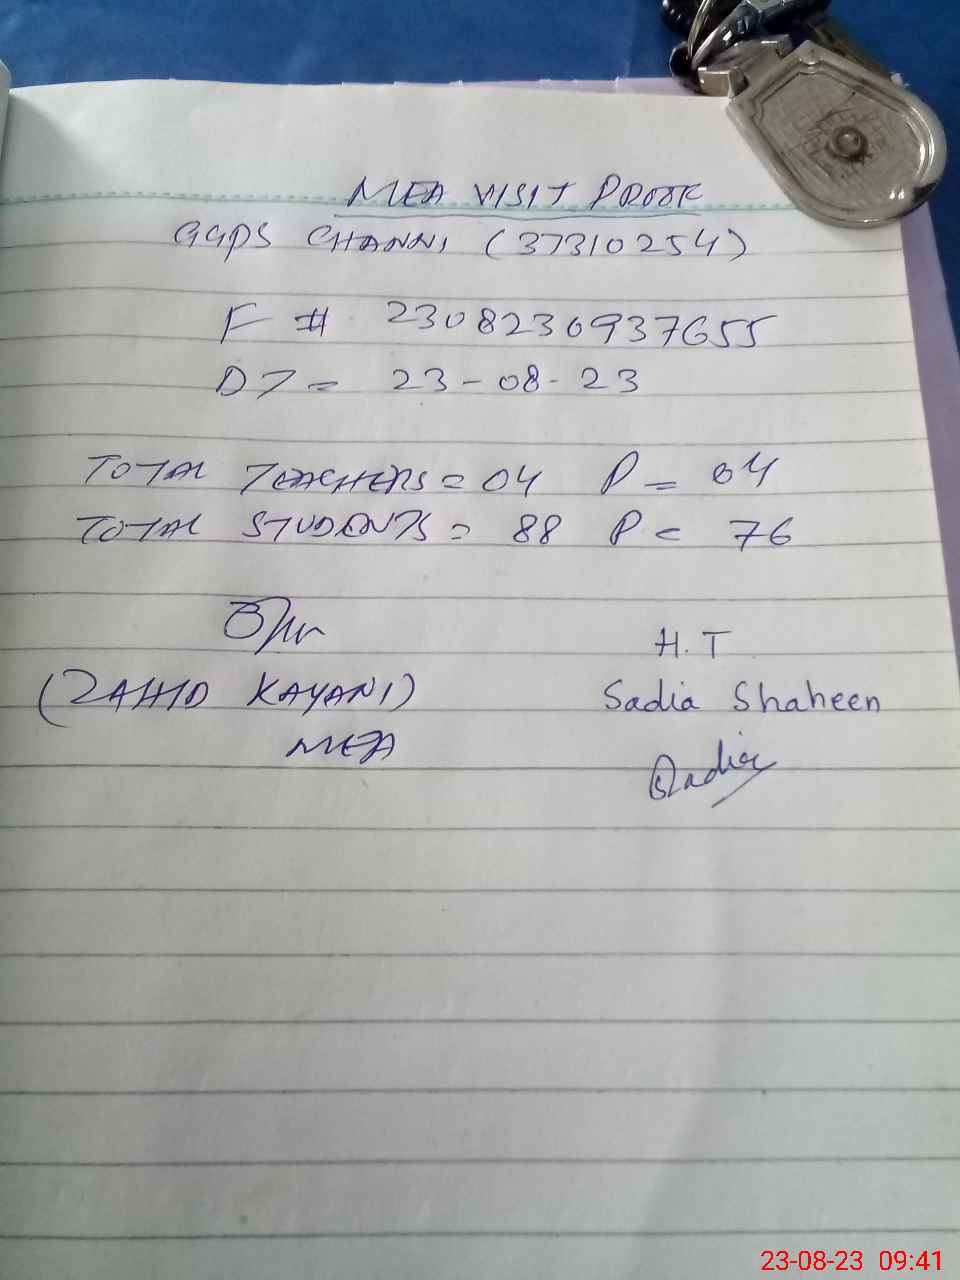 MEA VISIT PROOF
GGPS CHANNI (37310254)
F # 2308230937655
DT = 23-08-23
TOTAL TEACHERS = 04 P = 04
TOTAL STUDENTS = 88 P = 76
H.T
(ZAHID KAYANI) Sadia Shaheen
MEA
Sadia
23-08-23 09:41